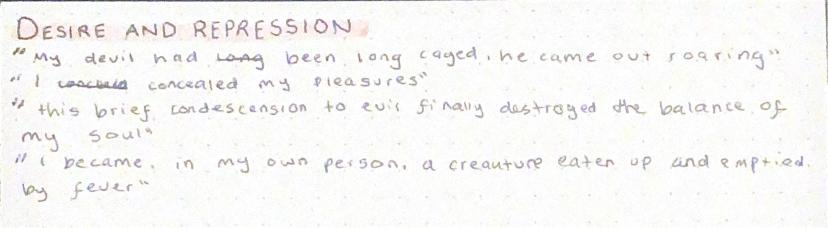 DESIRE AND REPRESSION
"My devil had long been long caged, he came out roaring"
"I concealed my pleasures"
"this brief condescension to evil finally destroyed the balance of
my soul"
"i became, in my own person, a creauture eaten up and emptied
by fever"